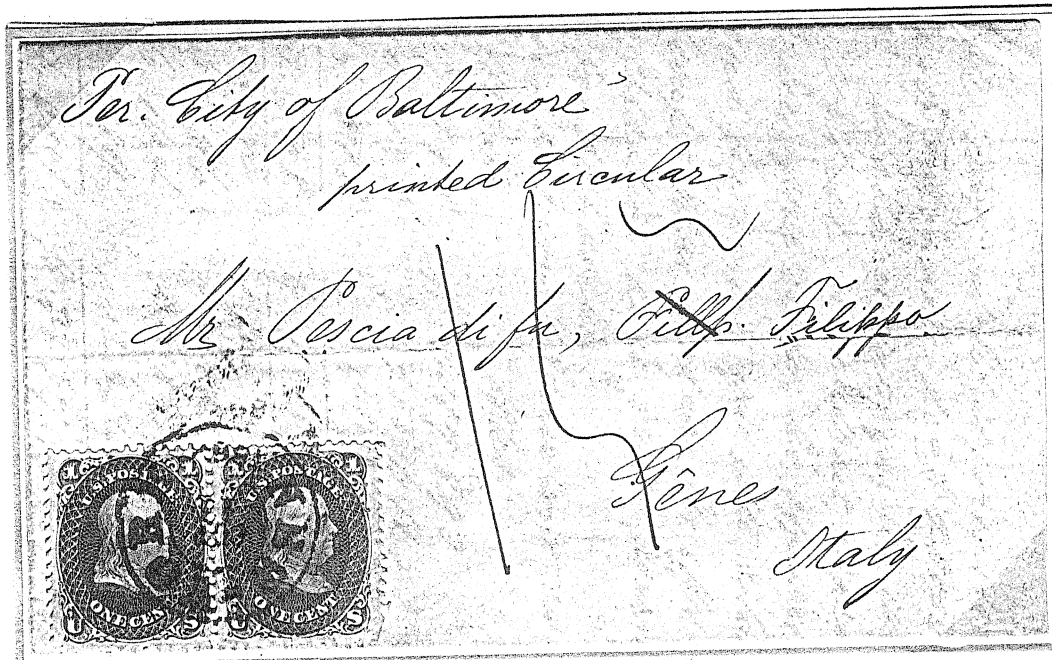 Per. City of Baltimore"
printed Circular
Mr Pescia di fu, Filip. Filippo
Gênes
Italy
1 U.S. POSTAGE 1
ONE CENT
U S
1 U.S. POSTAGE 1
ONE CENT
U S